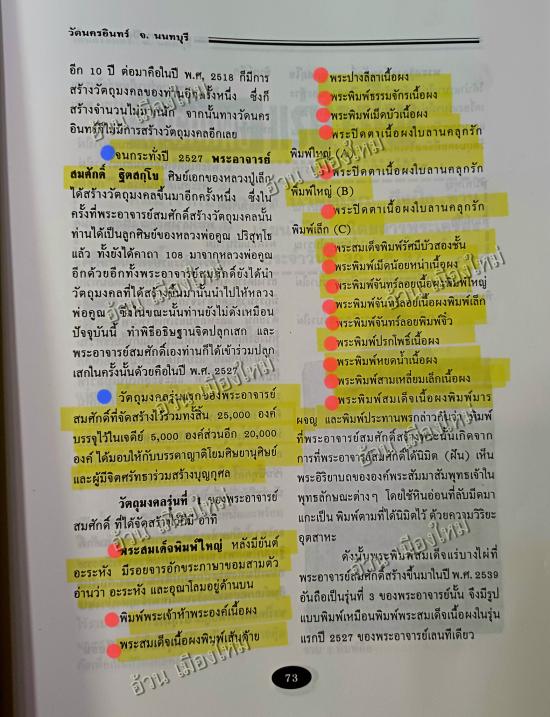 วัดนครอินทร์ จ. นนทบุรี
อีก 10 ปี ต่อมาคือในปี พ.ศ. 2518 ก็มีการ
สร้างวัตถุมงคลของท่านอีกครั้งหนึ่ง ซึ่งก็
สร้างจำนวนไม่มากนัก จากนั้นทางวัดนคร
อินทร์ก็ไม่มีการสร้างวัตถุมงคลอีกเลย
จนกระทั่งปี 2527 พระอาจารย์
สมศักดิ์ ฐิตสกฺโข ศิษย์เอกของหลวงปู่เล็ก
ได้สร้างวัตถุมงคลขึ้นมาอีกครั้งหนึ่ง ซึ่งใน
ครั้งที่พระอาจารย์สมศักดิ์สร้างวัตถุมงคลนั้น
ท่านได้เป็นลูกศิษย์ของหลวงพ่อคูณ ปริสุทโธ
แล้ว ทั้งยังได้คาถา 108 มาจากหลวงพ่อคูณ
อีกด้วยอีกทั้งพระอาจารย์สมศักดิ์ยังได้นำ
วัตถุมงคลที่ได้สร้างขึ้นมานั้นนำไปให้หลวง
พ่อคูณ ซึ่งในขณะนั้นท่านยังไม่ดังเหมือน
ปัจจุบันนี้ ทำพิธีอธิษฐานจิตปลุกเสก และ
พระอาจารย์สมศักดิ์เองท่านก็ได้เข้าร่วมปลุก
เสกในครั้งนั้นด้วยคือในปี พ.ศ. 2527
วัตถุมงคลรุ่นแรกของพระอาจารย์
สมศักดิ์ที่จัดสร้างไว้รวมทั้งสิ้น 25,000 องค์
บรรจุไว้ในเจดีย์ 5,000 องค์ส่วนอีก 20,000
องค์ ได้มอบให้กับบรรดาญาติโยมศิษยานุศิษย์
และผู้มีจิตศรัทธาร่วมสร้างบุญกุศล
วัตถุมงคลรุ่นที่ 1 ของพระอาจารย์
สมศักดิ์ ที่ได้จัดสร้างไว้มี อาทิ
พระสมเด็จพิมพ์ใหญ่ หลังมียันต์
อะระหัง มีรอยจารอักขระภาษาขอมสามตัว
อ่านว่า อะระหัง และอุณาโลมอยู่ด้านบน
พิมพ์พระเจ้าห้าพระองค์เนื้อผง
พระสมเด็จเนื้อผงพิมพ์เส้นด้าย
พระปางลีลาเนื้อผง
พระพิมพ์ธรรมจักรเนื้อผง
พระพิมพ์เม็ดบัวเนื้อผง
พระปิดตาเนื้อผงใบลานคลุกรัก
พิมพ์ใหญ่
พระปิดตาเนื้อผงใบลานคลุกรัก
พิมพ์ใหญ่ (B)
พระปิดตาเนื้อผงใบลานคลุกรัก
พิมพ์เล็ก (C)
พระสมเด็จพิมพ์รัศมีบัวสองชั้น
พระพิมพ์เม็ดน้อยหน่าเนื้อผง
พระพิมพ์จันทร์ลอยเนื้อผงพิมพ์ใหญ่
พระพิมพ์จันทร์ลอยเนื้อผงพิมพ์เล็ก
พระพิมพ์จันทร์ลอยพิมพ์จิ๋ว
พระพิมพ์ปรกโพธิ์เนื้อผง
พระพิมพ์หยดน้ำเนื้อผง
พระพิมพ์สามเหลี่ยมเล็กเนื้อผง
พระพิมพ์สมเด็จเนื้อผงพิมพ์มาร
ผจญ และพิมพ์ประทานพรกล่าวกันว่า พิมพ์
ที่พระอาจารย์สมศักดิ์สร้างขึ้นมานั้นเกิดจาก
การที่พระอาจารย์สมศักดิ์ได้นิมิต (ฝัน) เห็น
พระอิริยาบถขององค์พระสัมมาสัมพุทธเจ้าใน
พุทธลักษณะต่างๆ โดยใช้หินอ่อนที่ลับมีดมา
แกะเป็น พิมพ์ตามที่ได้นิมิตไว้ ด้วยความวิริยะ
อุตสาหะ
ดังนั้นพระพิมพ์สมเด็จแร่บางไผ่ที่
พระอาจารย์สมศักดิ์สร้างขึ้นมาในปี พ.ศ. 2539
อันถือเป็นรุ่นที่ 3 ของพระอาจารย์นั้น จึงมีรูป
แบบพิมพ์เหมือนพิมพ์พระสมเด็จเนื้อผงในรุ่น
แรกปี 2527 ของพระอาจารย์เลนทีเดียว
73
อ้วน เมืองใหม่